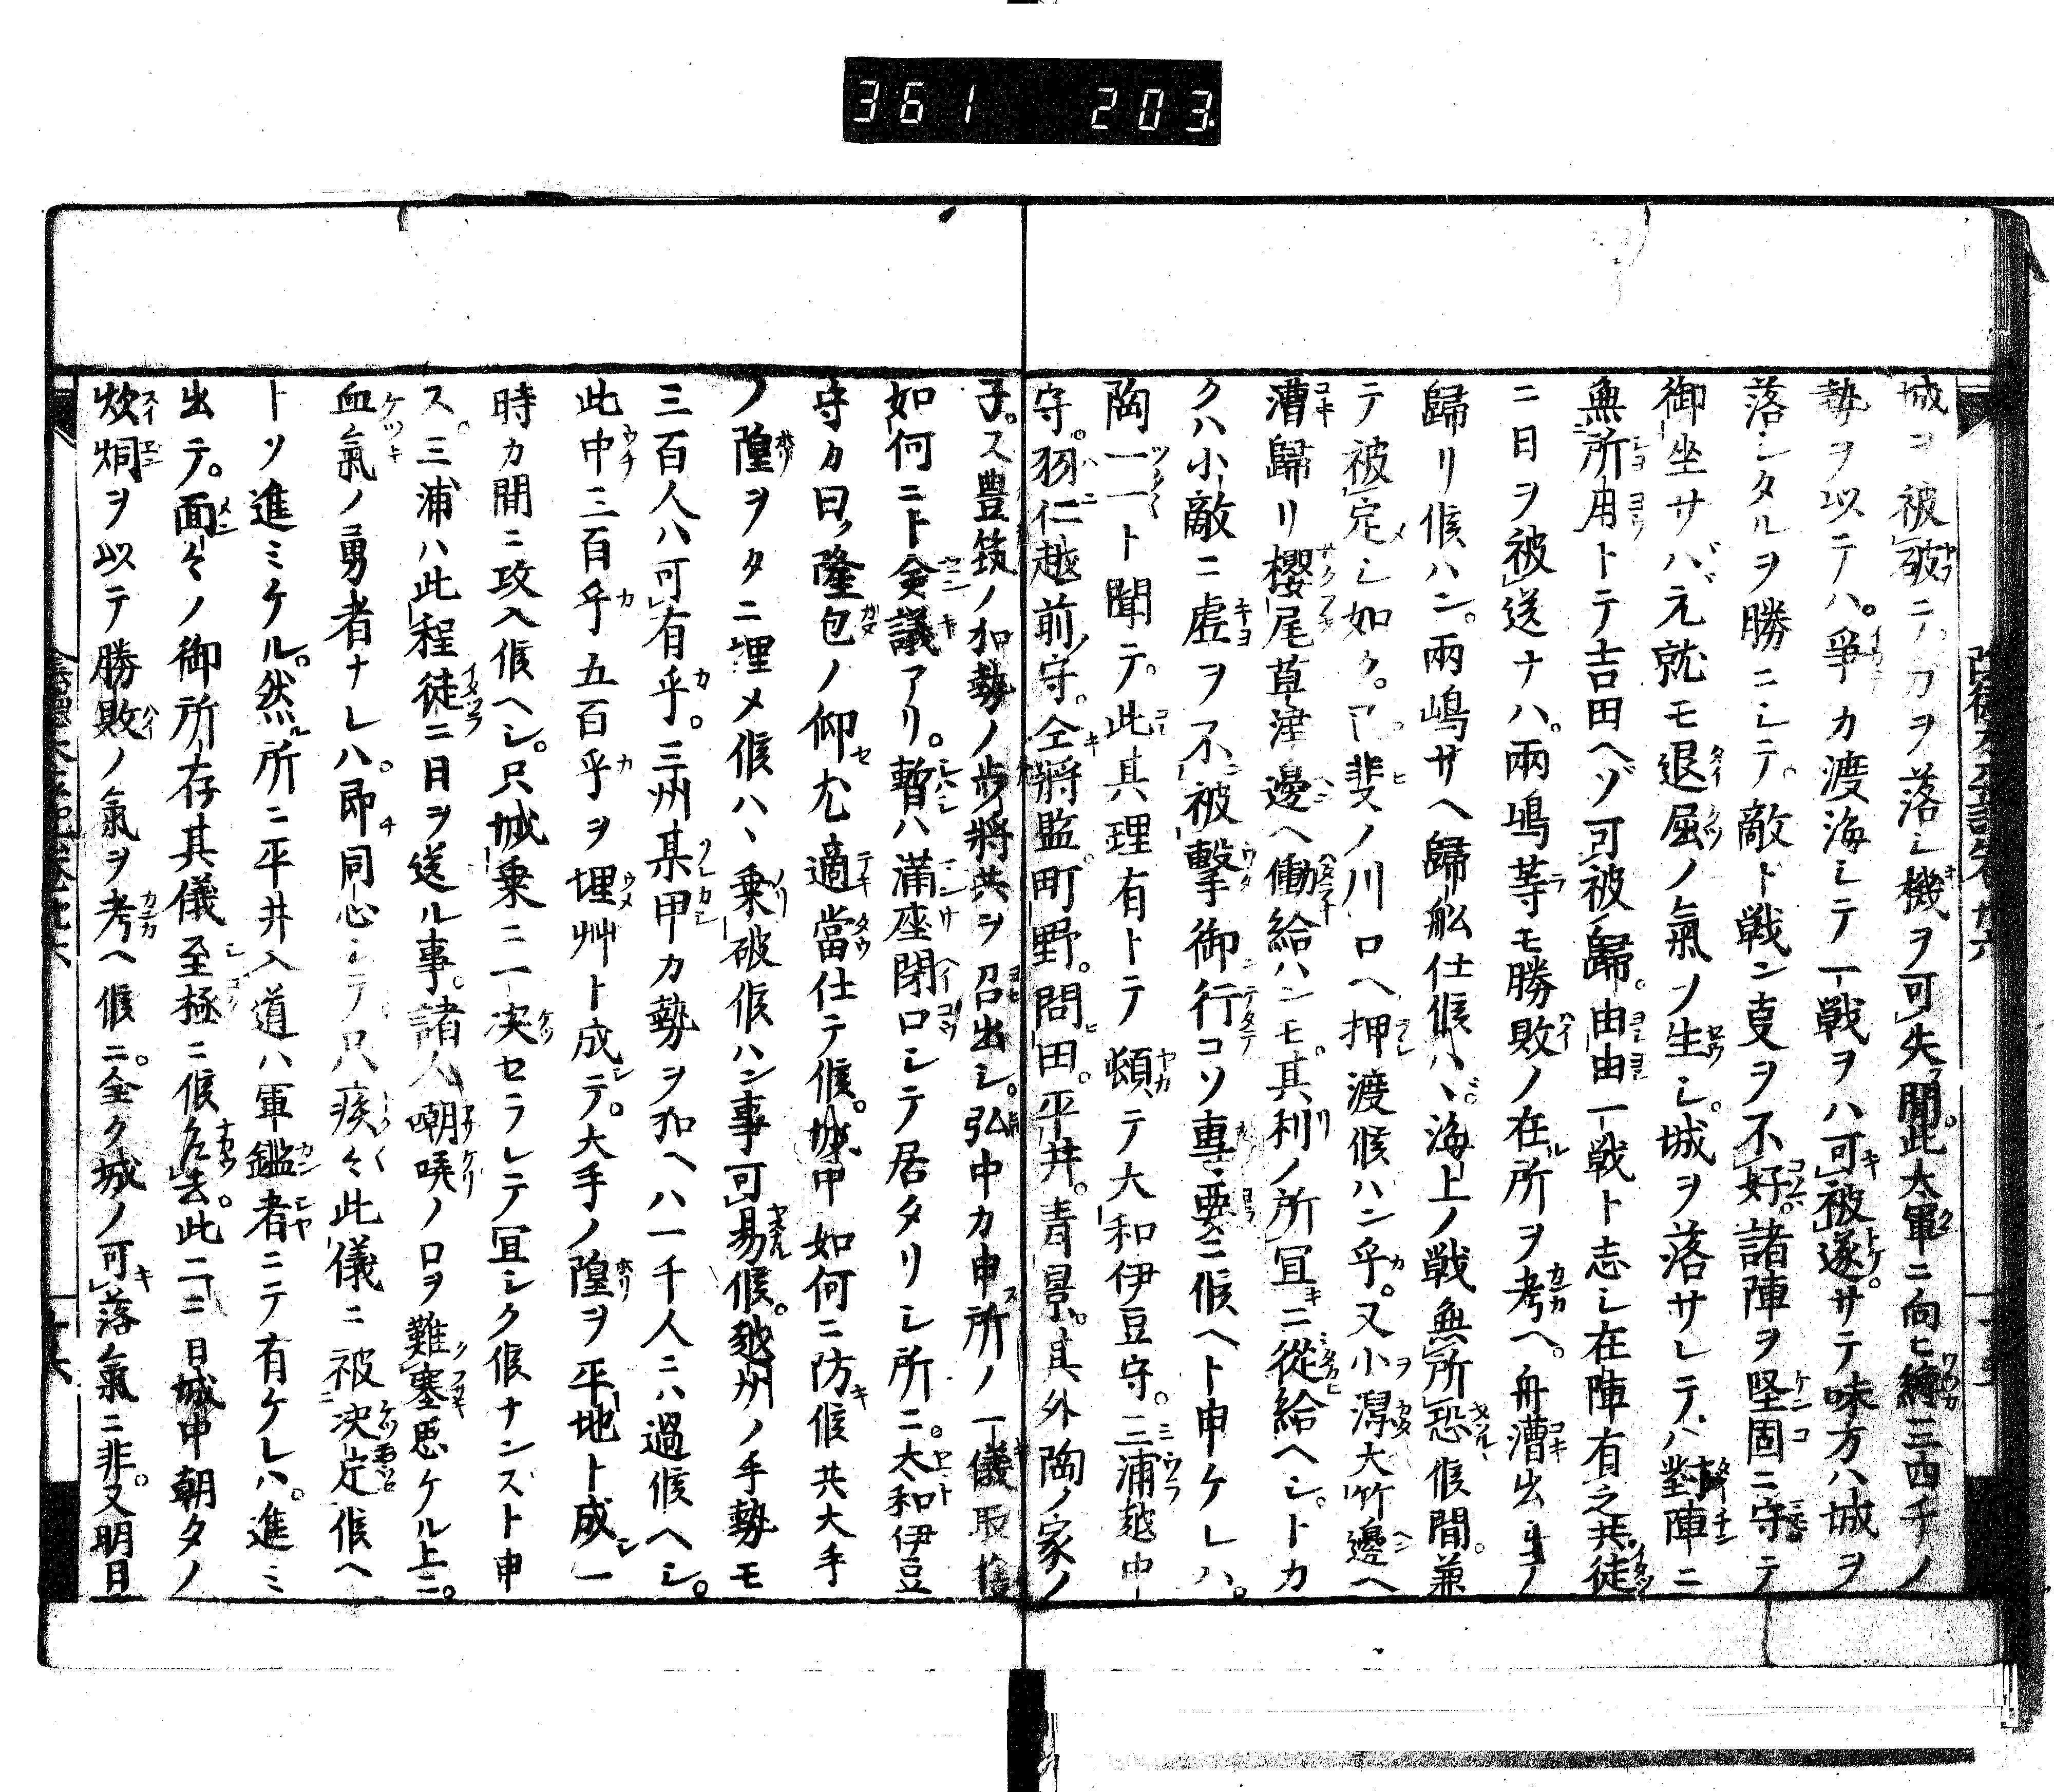 361 203
城ヲ被破ニテ力ヲ落シ機ヲ可失間此太軍ニ向ヒ纔三四千ノ
勢ヲ以テハ爭カ渡海シテ一戰ヲハ可被遂サテ味方ハ城ヲ
落シタルヲ勝ニシテ敵ト戰ン支ヲ不好諸陣ヲ堅固ニ守テ
御坐サバ元就モ退屈ノ氣ノ生シ城ヲ落サレテハ對陣ニ
無所用トテ吉田ヘゾ可被歸由由一戰ト志シ在陣有之共徒
ニ日ヲ被送ナハ兩嶋等モ勝敗ノ在所ヲ考ヘ舟漕出シノ
歸リ候ハン兩嶋サヘ歸舩仕候ハヾ海上ノ戰無所恐候間兼
テ被定シ如ク己斐ノ川口ヘ押渡候ハン乎又小潟大竹邊ヘ
漕歸リ櫻尾草津邊ヘ働給ハンモ其利ノ所冝ニ從給ヘシトカ
クハ小敵ニ虚ヲ不被擊御行コソ專要ニ候ヘト申ケレハ
陶一一ト聞テ此其理有トテ頓テ大和伊豆守三浦越中
守羽仁越前守仝將監町野問田平井青景其外陶ノ家ノ
子ス豊筑ノ加勢ノ歩將共ヲ召出シ弘中カ申所ノ一儀取捨
如何ニト僉議アリ暫ハ滿座閉口シテ居タリシ所ニ太和伊豆
守カ曰隆包ノ仰尤適當仕テ候城中如何ニ防候共大手
ノ隍ヲタニ埋メ候ハヽ乗破候ハン事可易候越州ノ手勢モ
三百人ハ可有乎三州某甲カ勢ヲ加ヘハ一千人ニハ過候ヘシ
此中三百乎五百乎ヲ埋艸ト成テ大手ノ隍ヲ平地ト成一
時カ間ニ攻入候ヘシ只城乗ニ一决セラレテ冝シク候ナンズト申
ス三浦ハ此程徒ニ日ヲ送ル事諸人嘲哢ノ口ヲ難塞思ケル上ニ
血氣ノ勇者ナレハ即同心シテ只疾々此儀ニ被决定候ヘ
トソ進ミケル然所ニ平井入道ハ軍鑑者ニテ有ケレハ進ミ
出テ面々ノ御所存其儀至極ニ候乍去此一二日城中朝夕ノ
炊烟ヲ以テ勝敗ノ氣ヲ考ヘ候ニ全ク城ノ可落氣ニ非又明日